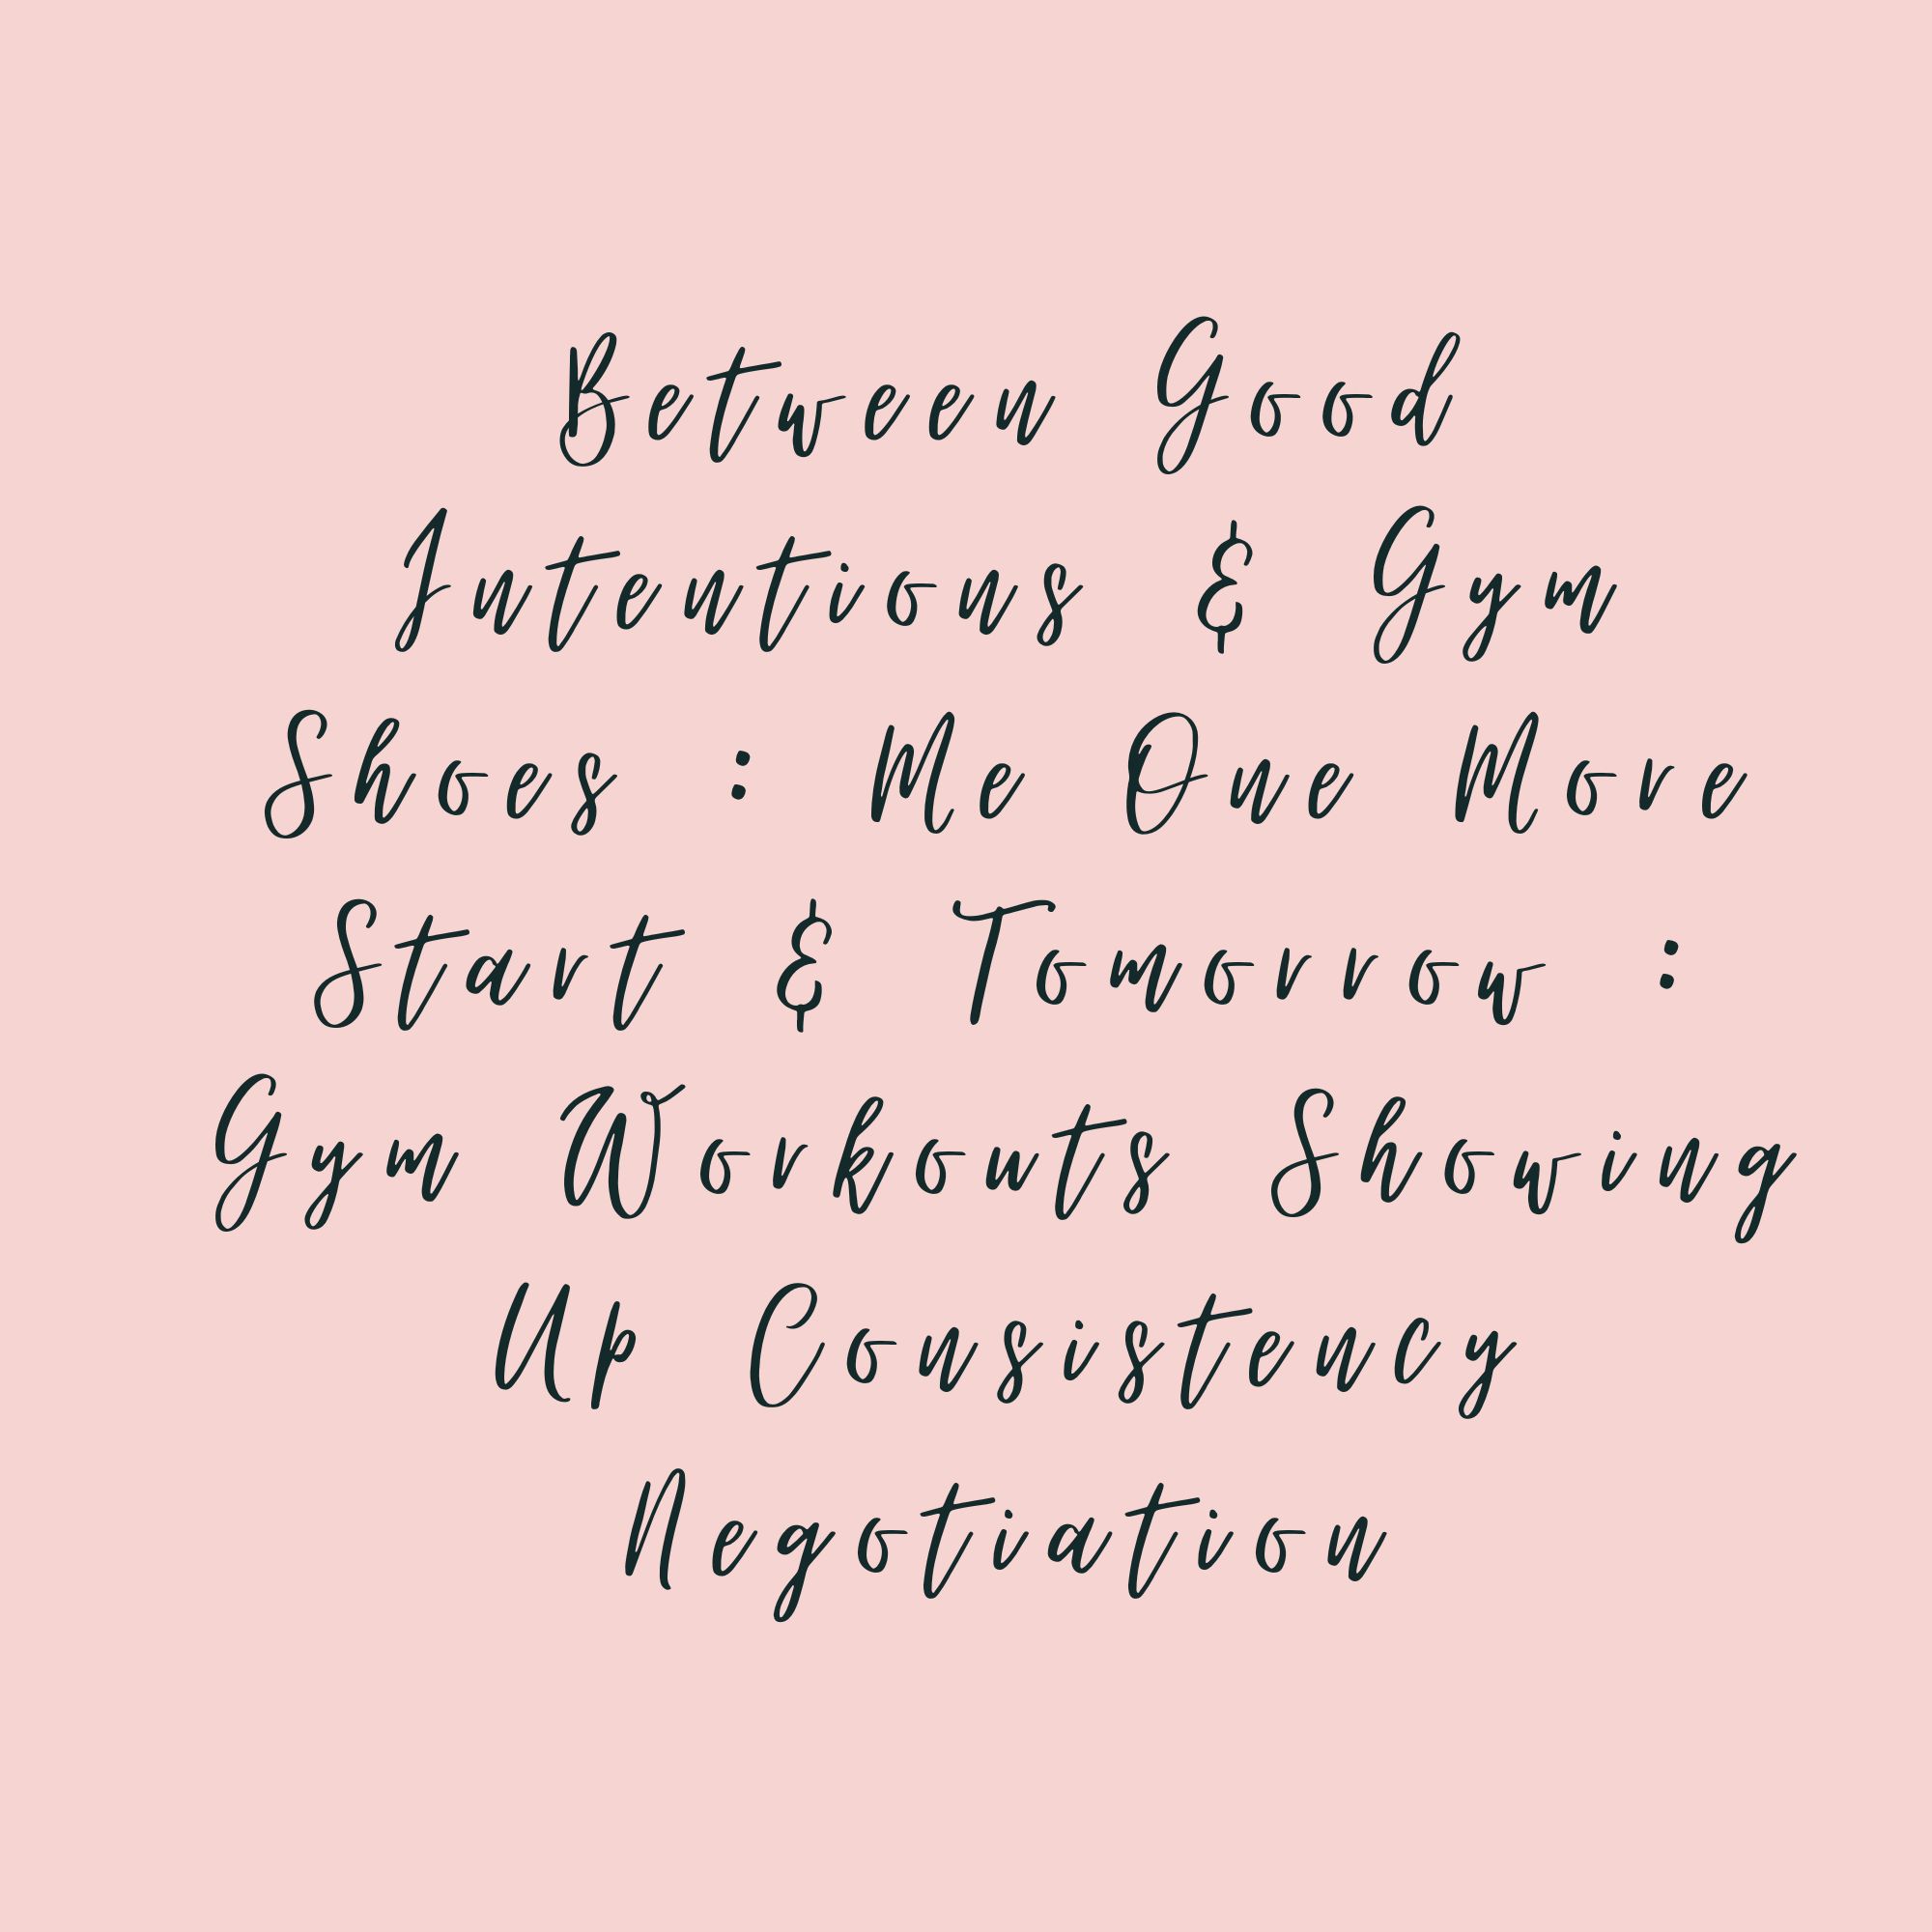 Between Good
Intentions & Gym
Shoes : Me One More
Start & Tomorrow :
Gym Workouts Showing
Up Consistency
Negotiation